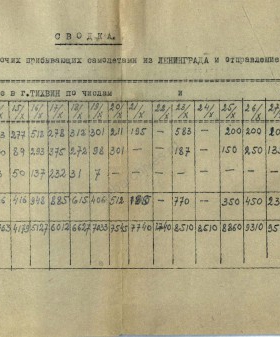 СВОДКА.
очих прибывающих самолетами из ЛЕНИНГРАДА и отправление
в г.ТИХВИН по числам и
15/X 16/X 17/X 18/X 19/X 20/X 21/X 22/X 23/X 24/X 25/X 26/X
277 512 278 312 301 211 195 — 583 — 200 200
89 293 375 272 98 301 — — 187 — 150 250
50 137 232 31 7 —
416 948 885 615 406 512 — 770 — 350 450
4179 5127 6012 6627 7033 7545 7740 7740 8510 8510 8860 9310